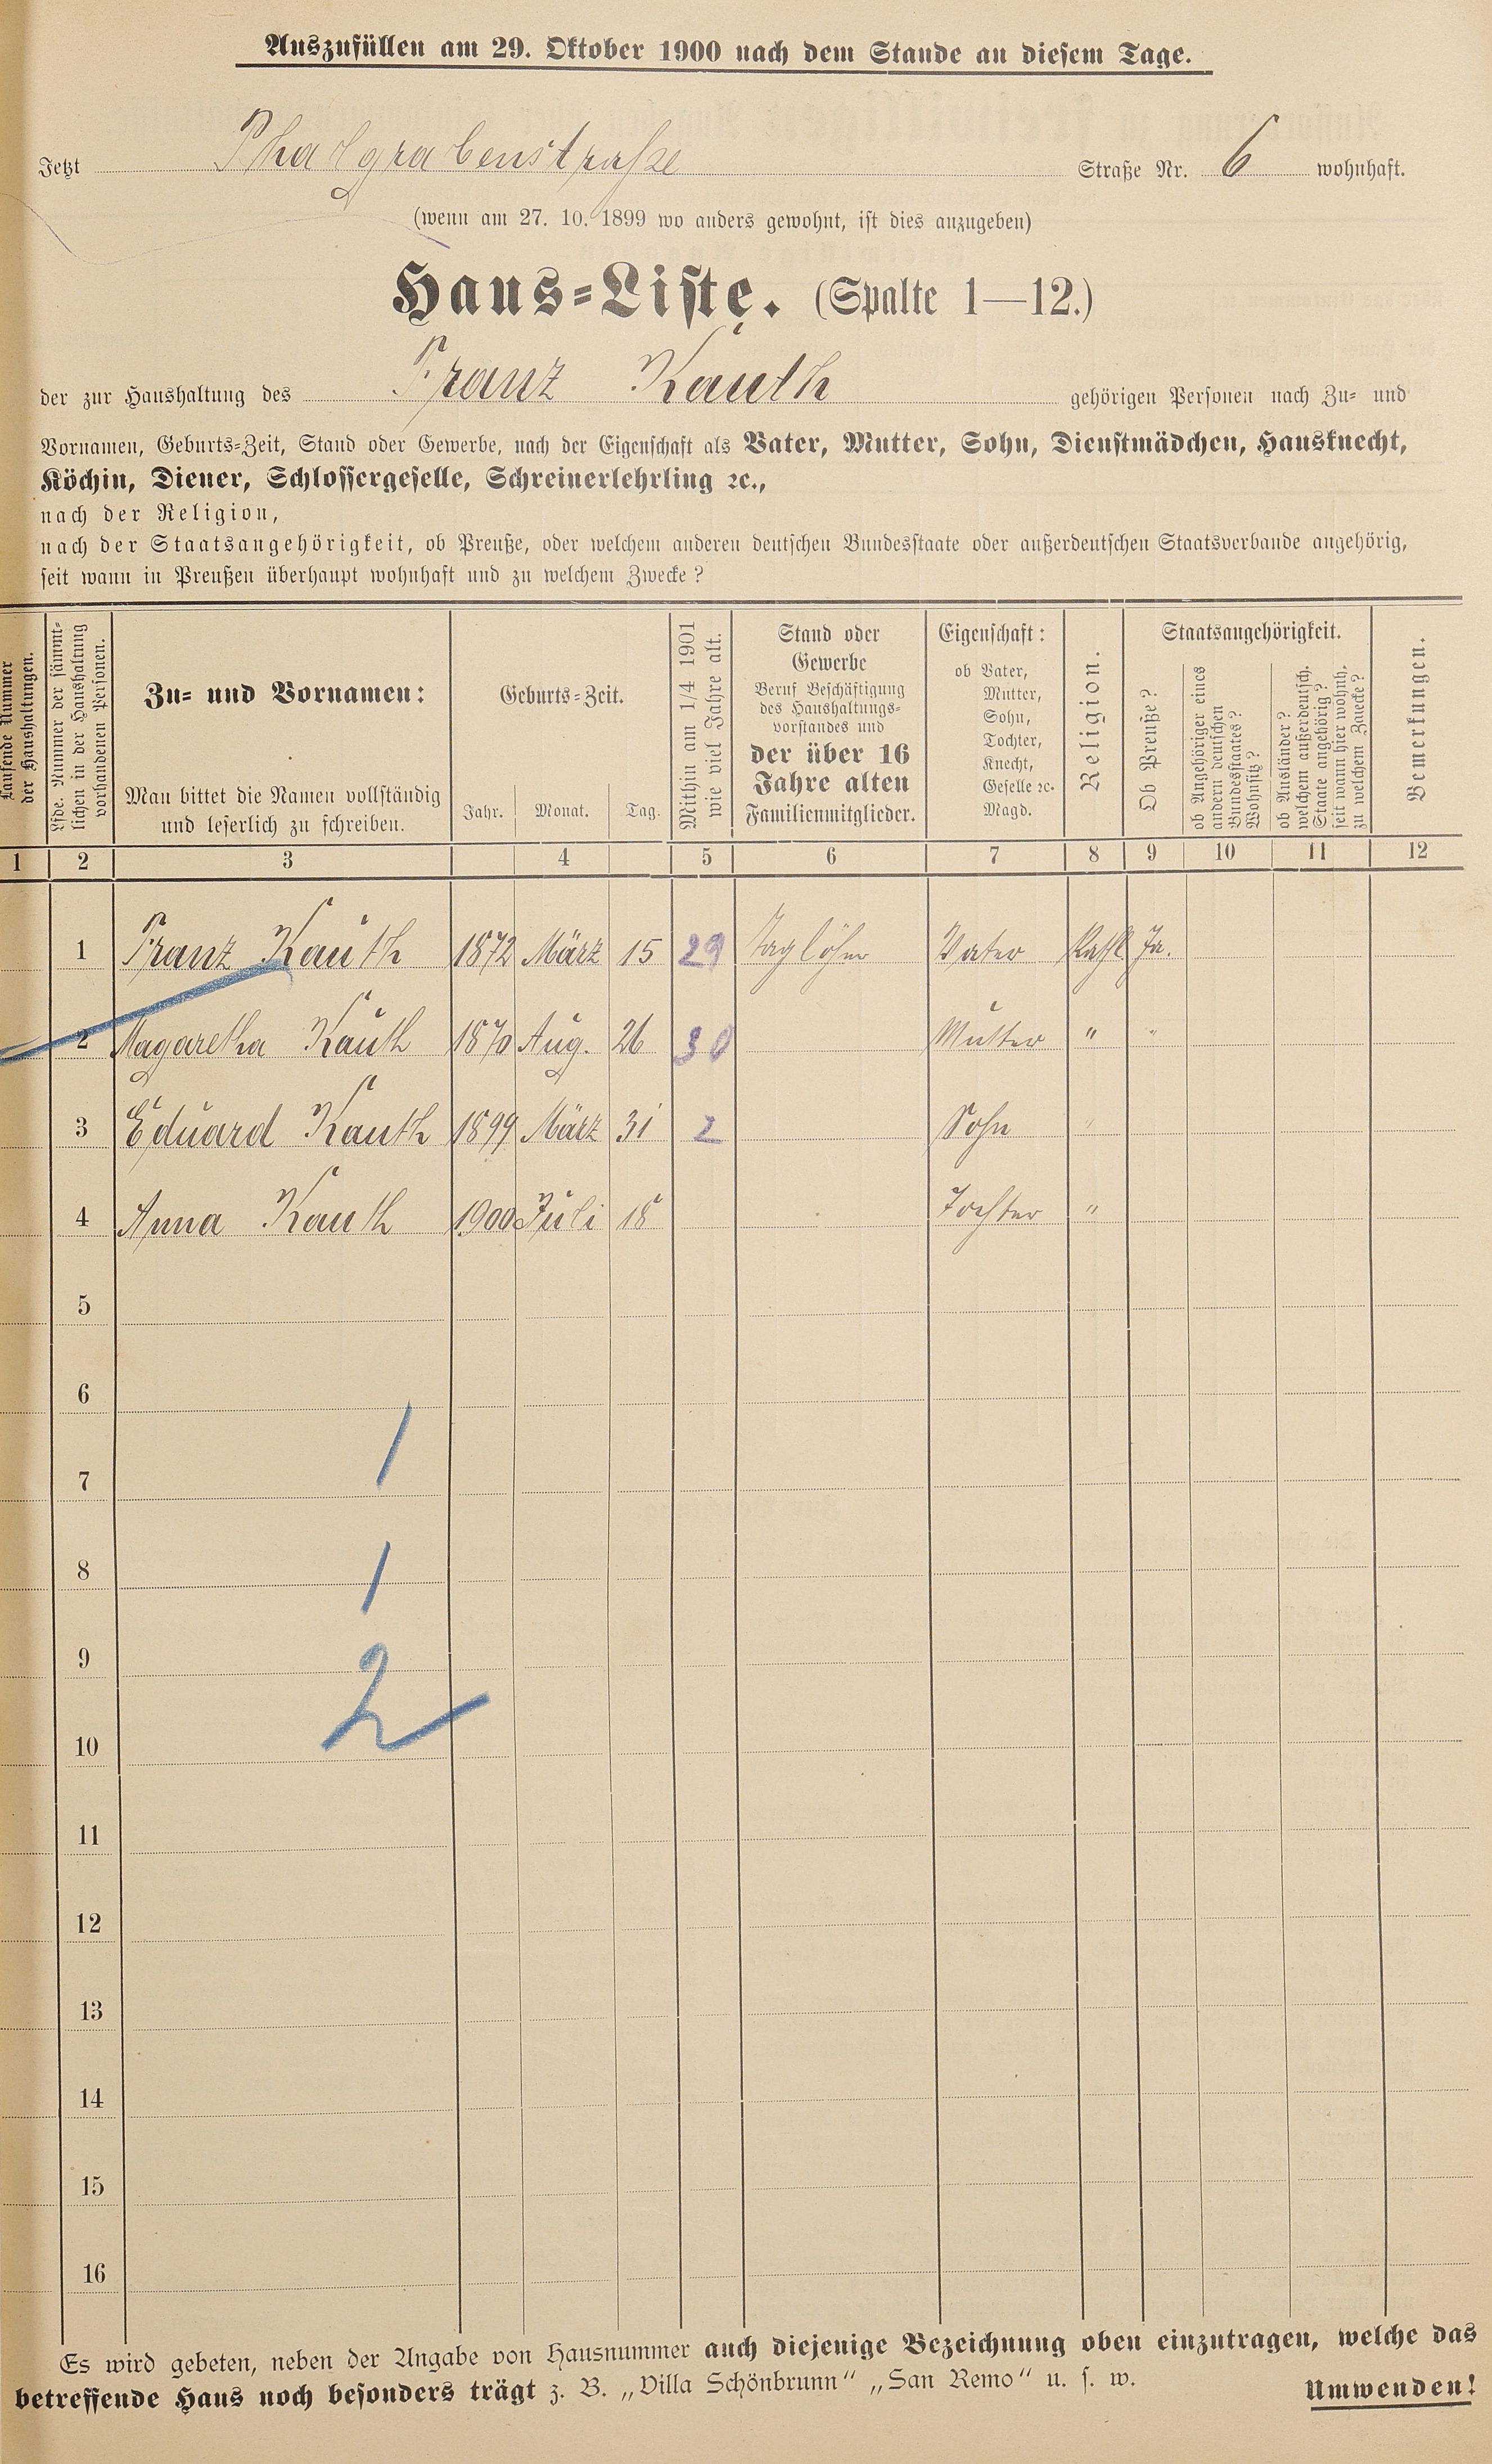 Auszufüllen am 29. Oktober 1900 nach dem Stande an diesem Tage.
Jetzt Phalgrabenstraße Straße Nr. 6 wohnhaft.
(wenn am 27. 10. 1899 wo anders gewohnt, ist dies anzugeben)
Haus-Liste. (Spalte 1—12.)
der zur Haushaltung des Franz Kauth gehörigen Personen nach Zu- und
Vornamen, Geburts-Zeit, Stand oder Gewerbe, nach der Eigenschaft als Vater, Mutter, Sohn, Dienstmädchen, Hausknecht,
Köchin, Diener, Schlossergeselle, Schreinerlehrling ꝛc.,
nach der Religion,
nach der Staatsangehörigkeit, ob Preuße, oder welchem anderen deutschen Bundesstaate oder außerdeutschen Staatsverbande angehörig,
seit wann in Preußen überhaupt wohnhaft und zu welchem Zwecke?
Laufende Nummer
der Haushaltungen.
Lfde. Nummer der sämmt-
lichen in der Haushaltung
vorhandenen Personen.
Zu- und Vornamen:
Man bittet die Namen vollständig
und leserlich zu schreiben.
Geburts-Zeit.
Jahr. Monat. Tag.
Mithin am 1/4 1901
wie viel Jahre alt.
Stand oder
Gewerbe
Beruf Beschäftigung
des Haushaltungs-
vorstandes und
der über 16
Jahre alten
Familienmitglieder.
Eigenschaft:
ob Vater,
Mutter,
Sohn,
Tochter,
Knecht,
Geselle ꝛc.
Magd.
Religion.
Staatsangehörigkeit.
Ob Preuße?
ob Angehöriger eines
andern deutschen
Bundesstaates?
Wohnsitz?
ob Ausländer?
welchem außerdeutsch.
Staate angehörig?
seit wann hier wohnh.
zu welchem Zwecke?
Bemerkungen.
1 2 3 4 5 6 7 8 9 10 11 12
1 Franz Kauth 1872 März 15 29 Taglöhner Vater Kath Ja.
2 Magaretha Kauth 1870 Aug. 26 30 Mutter " "
3 Eduard Kauth 1899 März 31 2 Sohn "
4 Anna Kauth 1900 Juli 18 Tochter "
5
6
1
7
8 1
9
2
10
11
12
13
14
15
16
Es wird gebeten, neben der Angabe von Hausnummer auch diejenige Bezeichnung oben einzutragen, welche das
betreffende Haus noch besonders trägt z. B. „Villa Schönbrunn“ „San Remo“ u. s. w.
Umwenden!